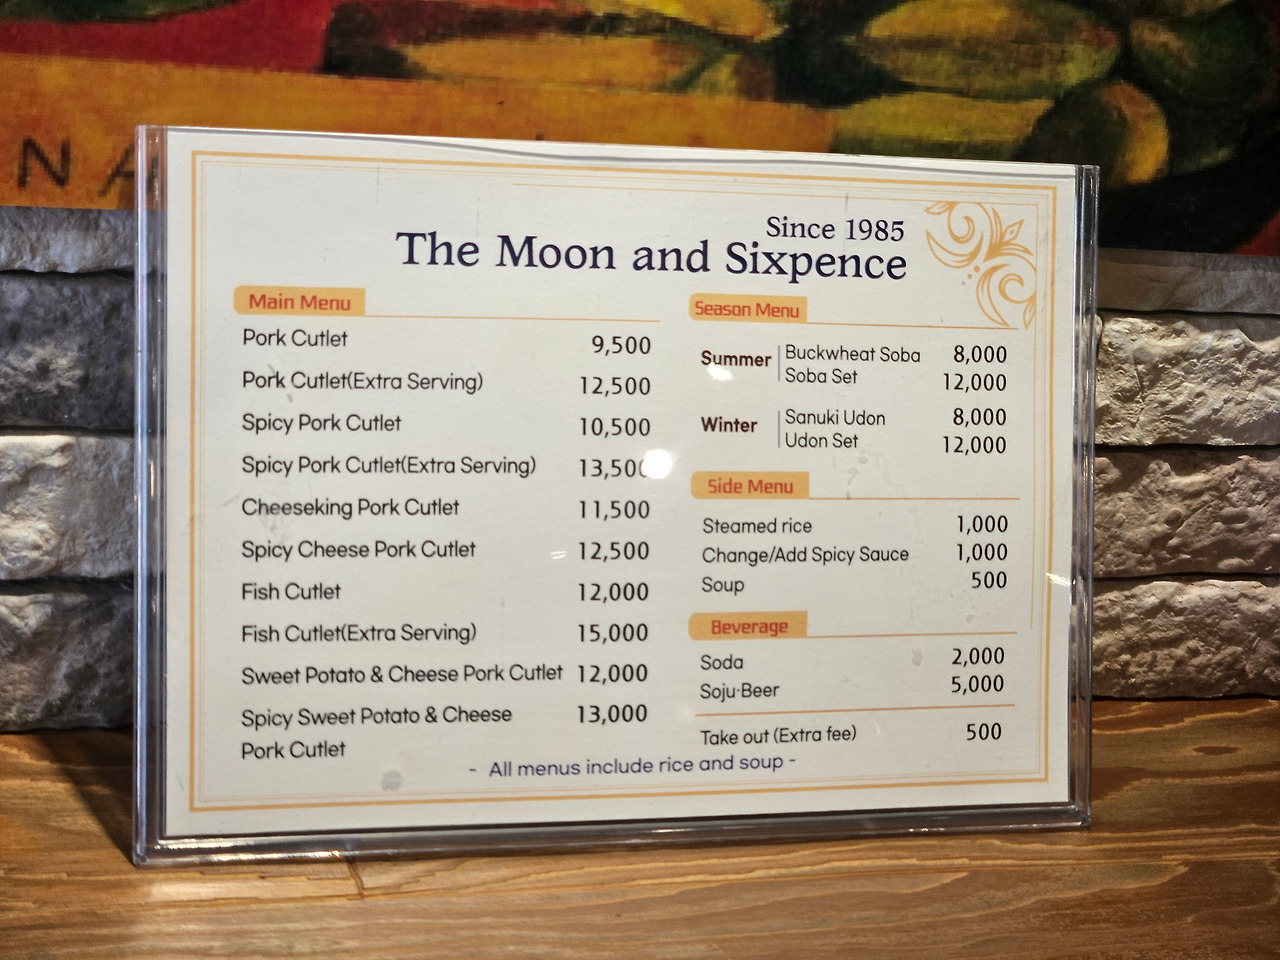 NA
Since 1985
The Moon and Sixpence
Main Menu
Pork Cutlet 9,500
Pork Cutlet(Extra Serving) 12,500
Spicy Pork Cutlet 10,500
Spicy Pork Cutlet(Extra Serving) 13,500
Cheeseking Pork Cutlet 11,500
Spicy Cheese Pork Cutlet 12,500
Fish Cutlet 12,000
Fish Cutlet(Extra Serving) 15,000
Sweet Potato & Cheese Pork Cutlet 12,000
Spicy Sweet Potato & Cheese 13,000
Pork Cutlet
Season Menu
Summer Buckwheat Soba 8,000
Soba Set 12,000
Winter Sanuki Udon 8,000
Udon Set 12,000
Side Menu
Steamed rice 1,000
Change/Add Spicy Sauce 1,000
Soup 500
Beverage
Soda 2,000
Soju·Beer 5,000
Take out (Extra fee) 500
- All menus include rice and soup -